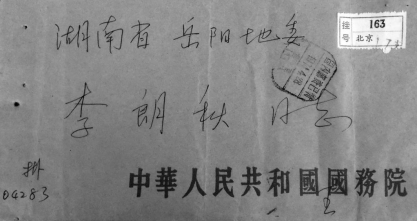 湖南省 岳阳地委
挂号 163
北京
李朗秋 同志
掛
04283
中華人民共和國國務院
王